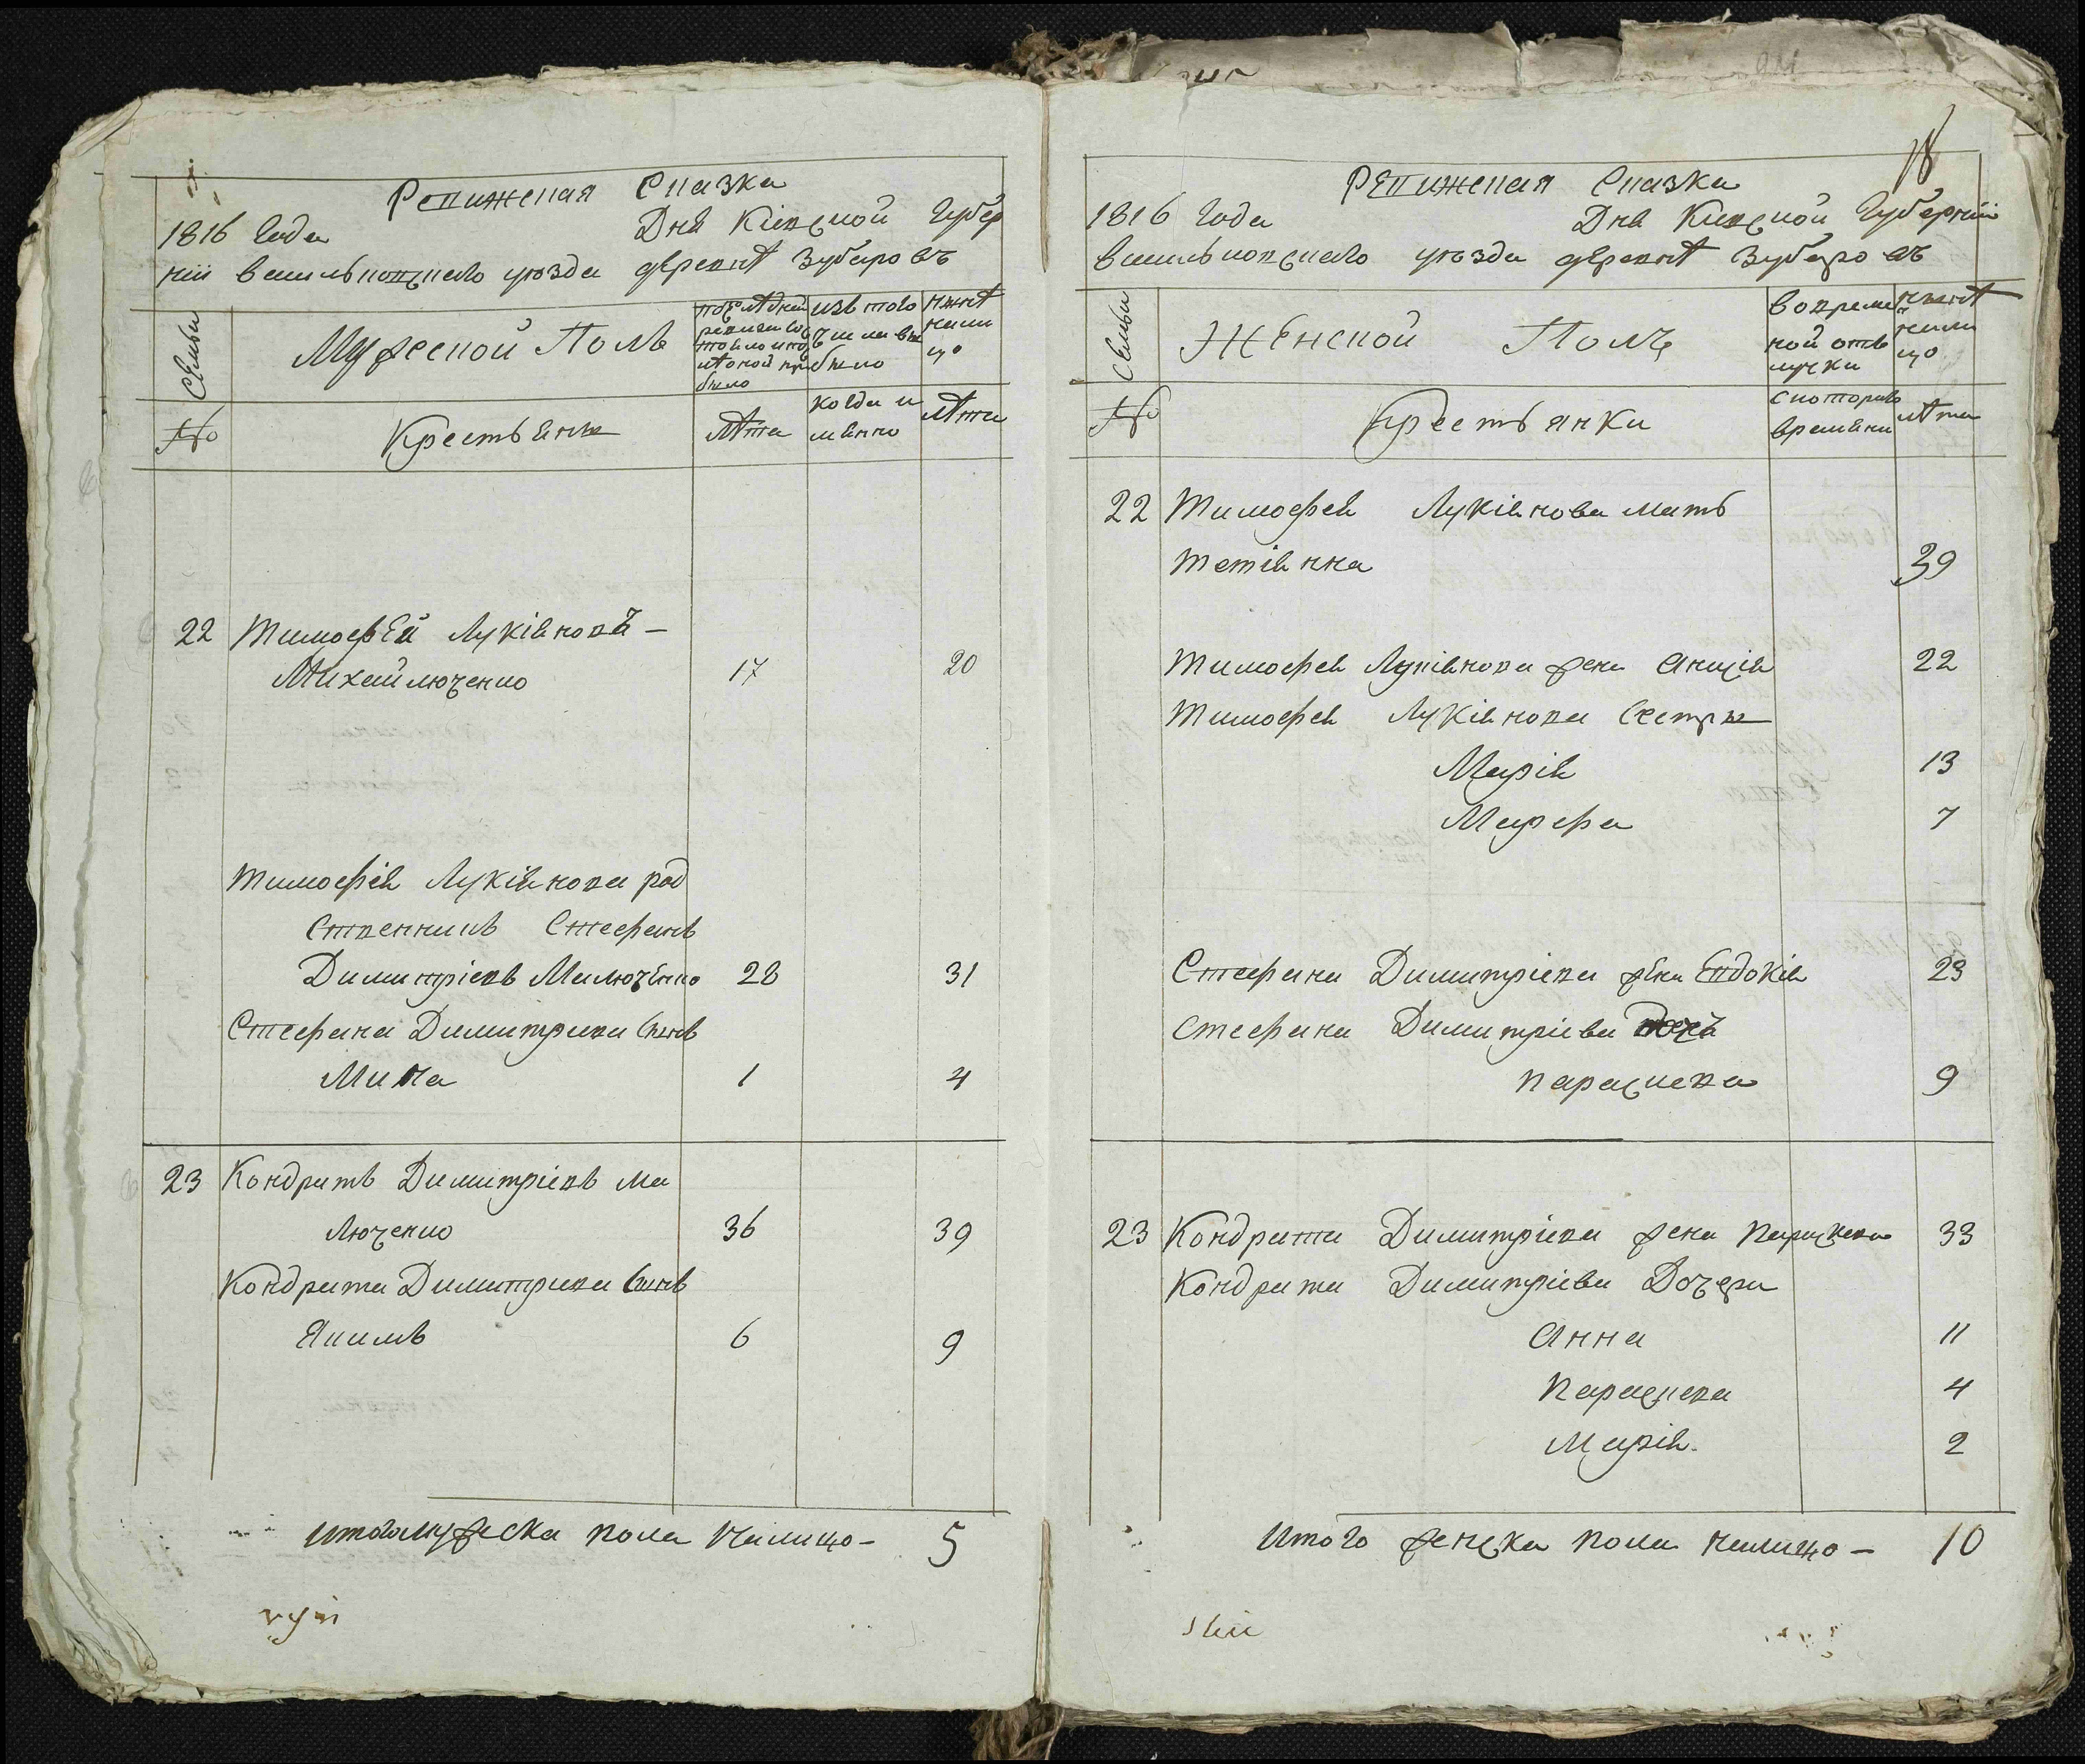 Ревижская Сказка
1816 Года Дня Кіевской Губер
ніи васильковскаго уезда деревнѣ Зубаровъ
Семьи
Мужеской Полъ
по последней ревизіи состояло и после оной прибыло
изъ того числа выбыло
нынѣ на лицо
№
Крестьяны
лѣта
когда именно
лѣта
22 Тимофей Лукіяновъ –
Михайлюченко 17 20
Тимофія Лукіянова род
ственникъ Стефанъ
Димитріевъ Малюченко 28 31
Стефана Димитриева сынъ
Мина 1 4
23 Кондратъ Димитріевъ Ма
люченко 36 39
Кондрата Димитриева сынъ
Якимъ 6 9
Итого мужеска пола налицо – 5
18
Ревижская Сказка
1816 Года Дня Киевской Губерніи
васильковскаго уезда деревнѣ Зубаровъ
Семьи
Женской Полъ
во временной отлучки
нынѣ на лицо
№
Крестьянки
с котораго времяни
лѣта
22 Тимофея Лукіянова мать
Тетіянна 39
Тимофея Лукіянова жена 22
Тимофея Лукіянова сестры
Марія 13
Марфа 7
Стефана Димитріева жена Евдокія 29
Стефана Димитріева дочь
Параскева 9
23 Кондрата Димитріева жена Параскева 33
Кондрата Димитріева Дочери
Анна 11
Параскева 4
Марія 2
Итого женска пола налицо – 10